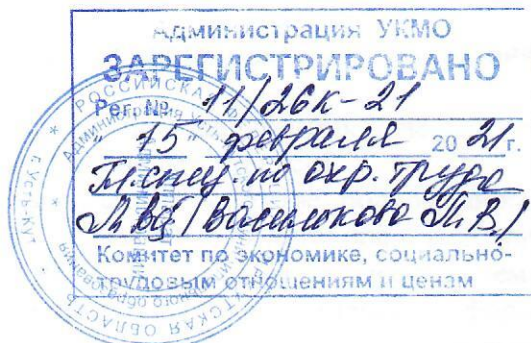 Администрация УКМО
ЗАРЕГИСТРИРОВАНО
Рег. № 11/26к-21
"15" февраля 2021г.
Гл. спец по охр. труда
/Василькова Л.В./
Комитет по экономике, социально-
трудовым отношениям и ценам
РОССИЙСКАЯ
Администрация Усть-
ОБЛАСТЬ
г. Усть-Кут